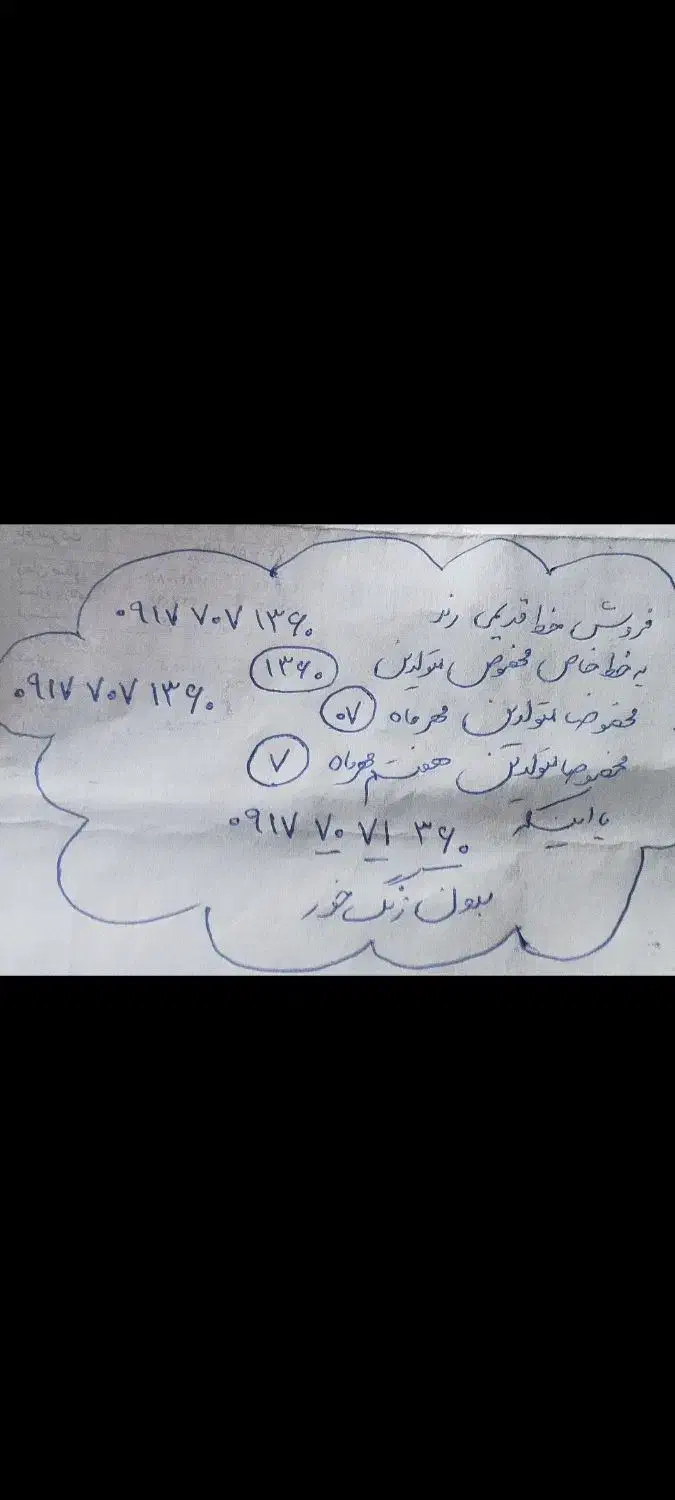 فروش خط قدیمی رند ۰۹۱۷ ۷۰۷ ۱۳۶۰
یه خط خاص مخصوص متولدین ۱۳۶۰
۰۹۱۷ ۷۰۷ ۱۳۶۰
مخصوصا متولدین مهرماه ۰۷
مخصوصا متولدین هفتم مهرماه ۷
یا اینکه ۰۹۱۷ ۷۰ ۷۱ ۳۶۰
بدون زنگ خور